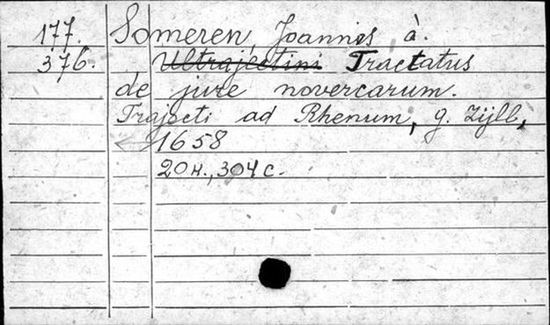 177. Someren, Joannis à.
376. Ultrajectini Tractatus
de jure novercarum.
Trajecti ad Rhenum, g. Zijll,
1658
20 н., 304 с.